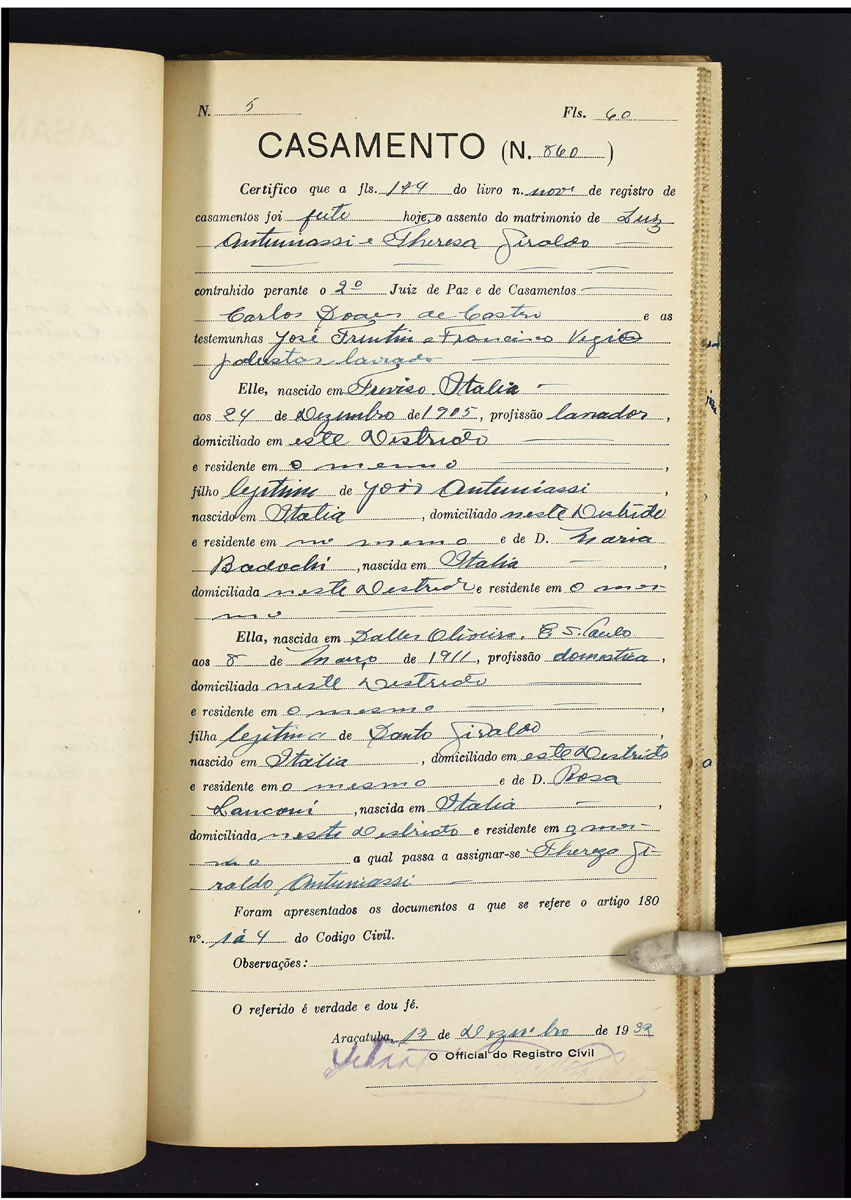 N. 5 Fls. 60
CASAMENTO (N. 860)
Certifico que a fls. 179 do livro n. nove de registro de
casamentos foi feito hoje, o assento do matrimonio de Luiz
Antuniassi e Theresa Giraldo
contrahido perante o 2º Juiz de Paz e de Casamentos
Carlos de Castro e as
testemunhas José Frentin e Francisco
Elle, nascido em Treviso Italia
aos 24 de Dezembro de 1905, profissão lavrador,
domiciliado em este Destricto
e residente em o mesmo,
filho legitimo de João Antuniassi,
nascido em Italia, domiciliado neste Destricto
e residente em no mesmo e de D. Maria
Badochi, nascida em Italia,
domiciliada neste Destricto e residente em o mes-
mo
Ella, nascida em Dalles Oliveira, E. S. Paulo
aos 8 de Março de 1911, profissão domestica,
domiciliada neste Destricto
e residente em o mesmo,
filha legitima de Santo Giraldo,
nascido em Italia, domiciliado em este Destricto
e residente em o mesmo e de D. Rosa
Lanconi, nascida em Italia,
domiciliada neste Destricto e residente em o mes-
mo a qual passa a assignar-se Thereza Gi-
raldo Antuniassi
Foram apresentados os documentos a que se refere o artigo 180
nº. 1 á 4 do Codigo Civil.
Observações:
O referido é verdade e dou fé.
Araçatuba, 12 de Dezembro de 1932
O Official do Registro Civil